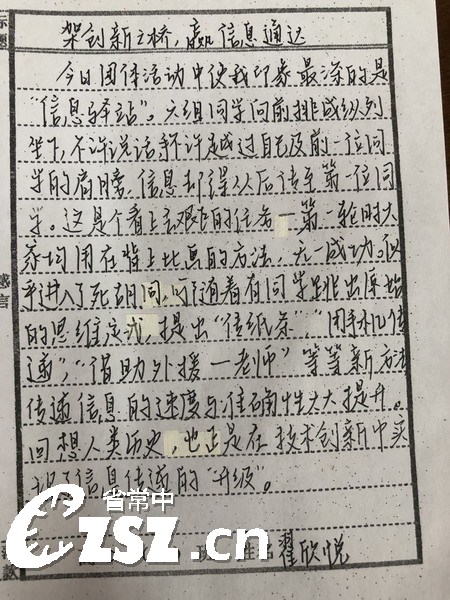 标题
架创新之桥，赢信息通达
今日团体活动中使我印象最深的是
“信息驿站”。六组同学向前排成纵列
坐下，不许说话手不许越过自己及前一位同
学的肩膀，信息却得从后传至第一位同
学。这是个看上去艰巨的任务—第一轮时大
家均用在背上比画的方法，无一成功，似
乎进入了死胡同，可随着有同学跳出原始
的思维定式，提出“传纸条”，“用手机传
递”，“借助外援—老师”等等新方法
传递信息的速度与准确性大大提升。
回想人类历史，也正是在技术创新中实
现了信息传递的“升级”。
感言
省常中
czsz.com.cn
班 姓名 翟欣悦
落款